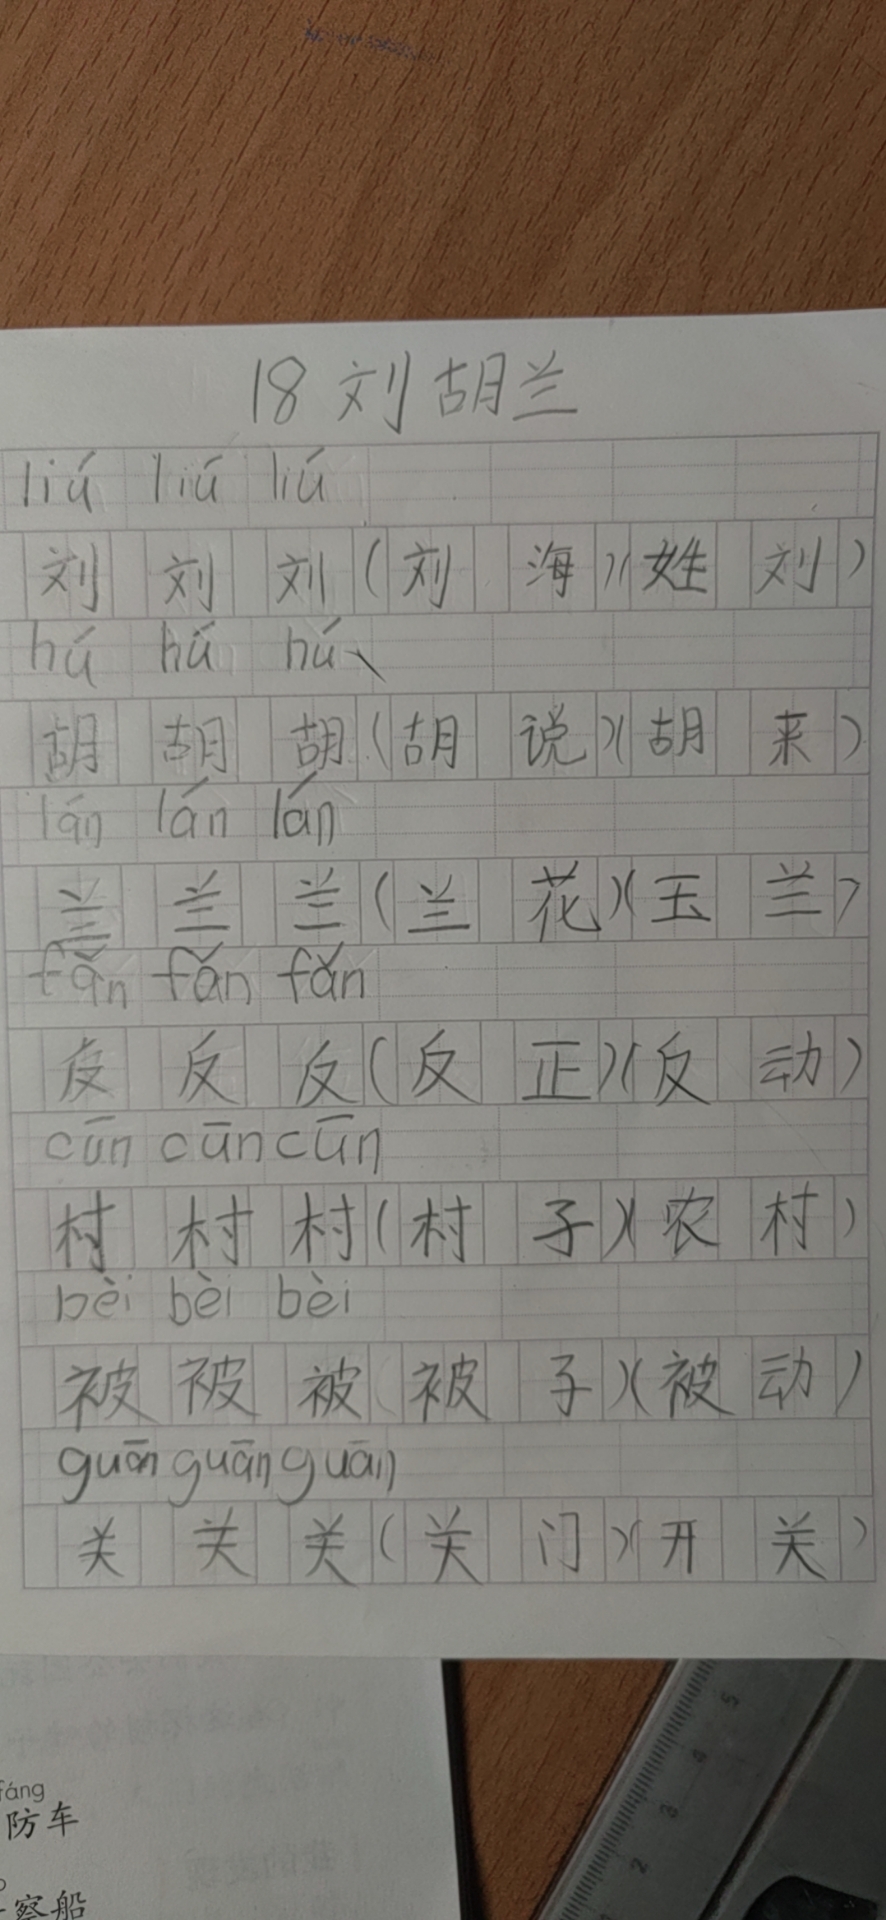 18 刘胡兰
liú liú liú
刘 刘 刘 (刘 海)(姓 刘)
hú hú hú
胡 胡 胡 (胡 说)(胡 来)
lán lán lán
兰 兰 兰 (兰 花)(玉 兰)
fǎn fǎn fǎn
反 反 反 (反 正)(反 动)
cūn cūn cūn
村 村 村 (村 子)(农 村)
bèi bèi bèi
被 被 被 (被 子)(被 动)
guān guān guān
关 关 关 (关 门)(开 关)
fáng
防车
察船
5
4
3
2